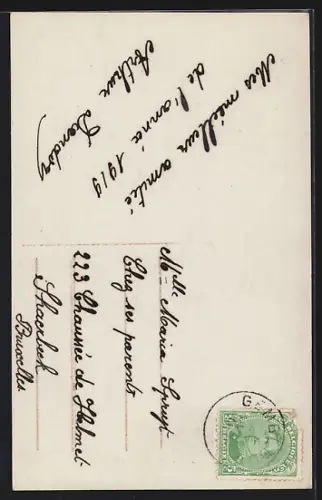 Mes meilleur amitié
de l'anné 1919
Arthur
Mlle Maria Spruyt
Chez ses parents
223 Chaussée de Helmet
Schaerbeek
Bruxelles
GEMBL